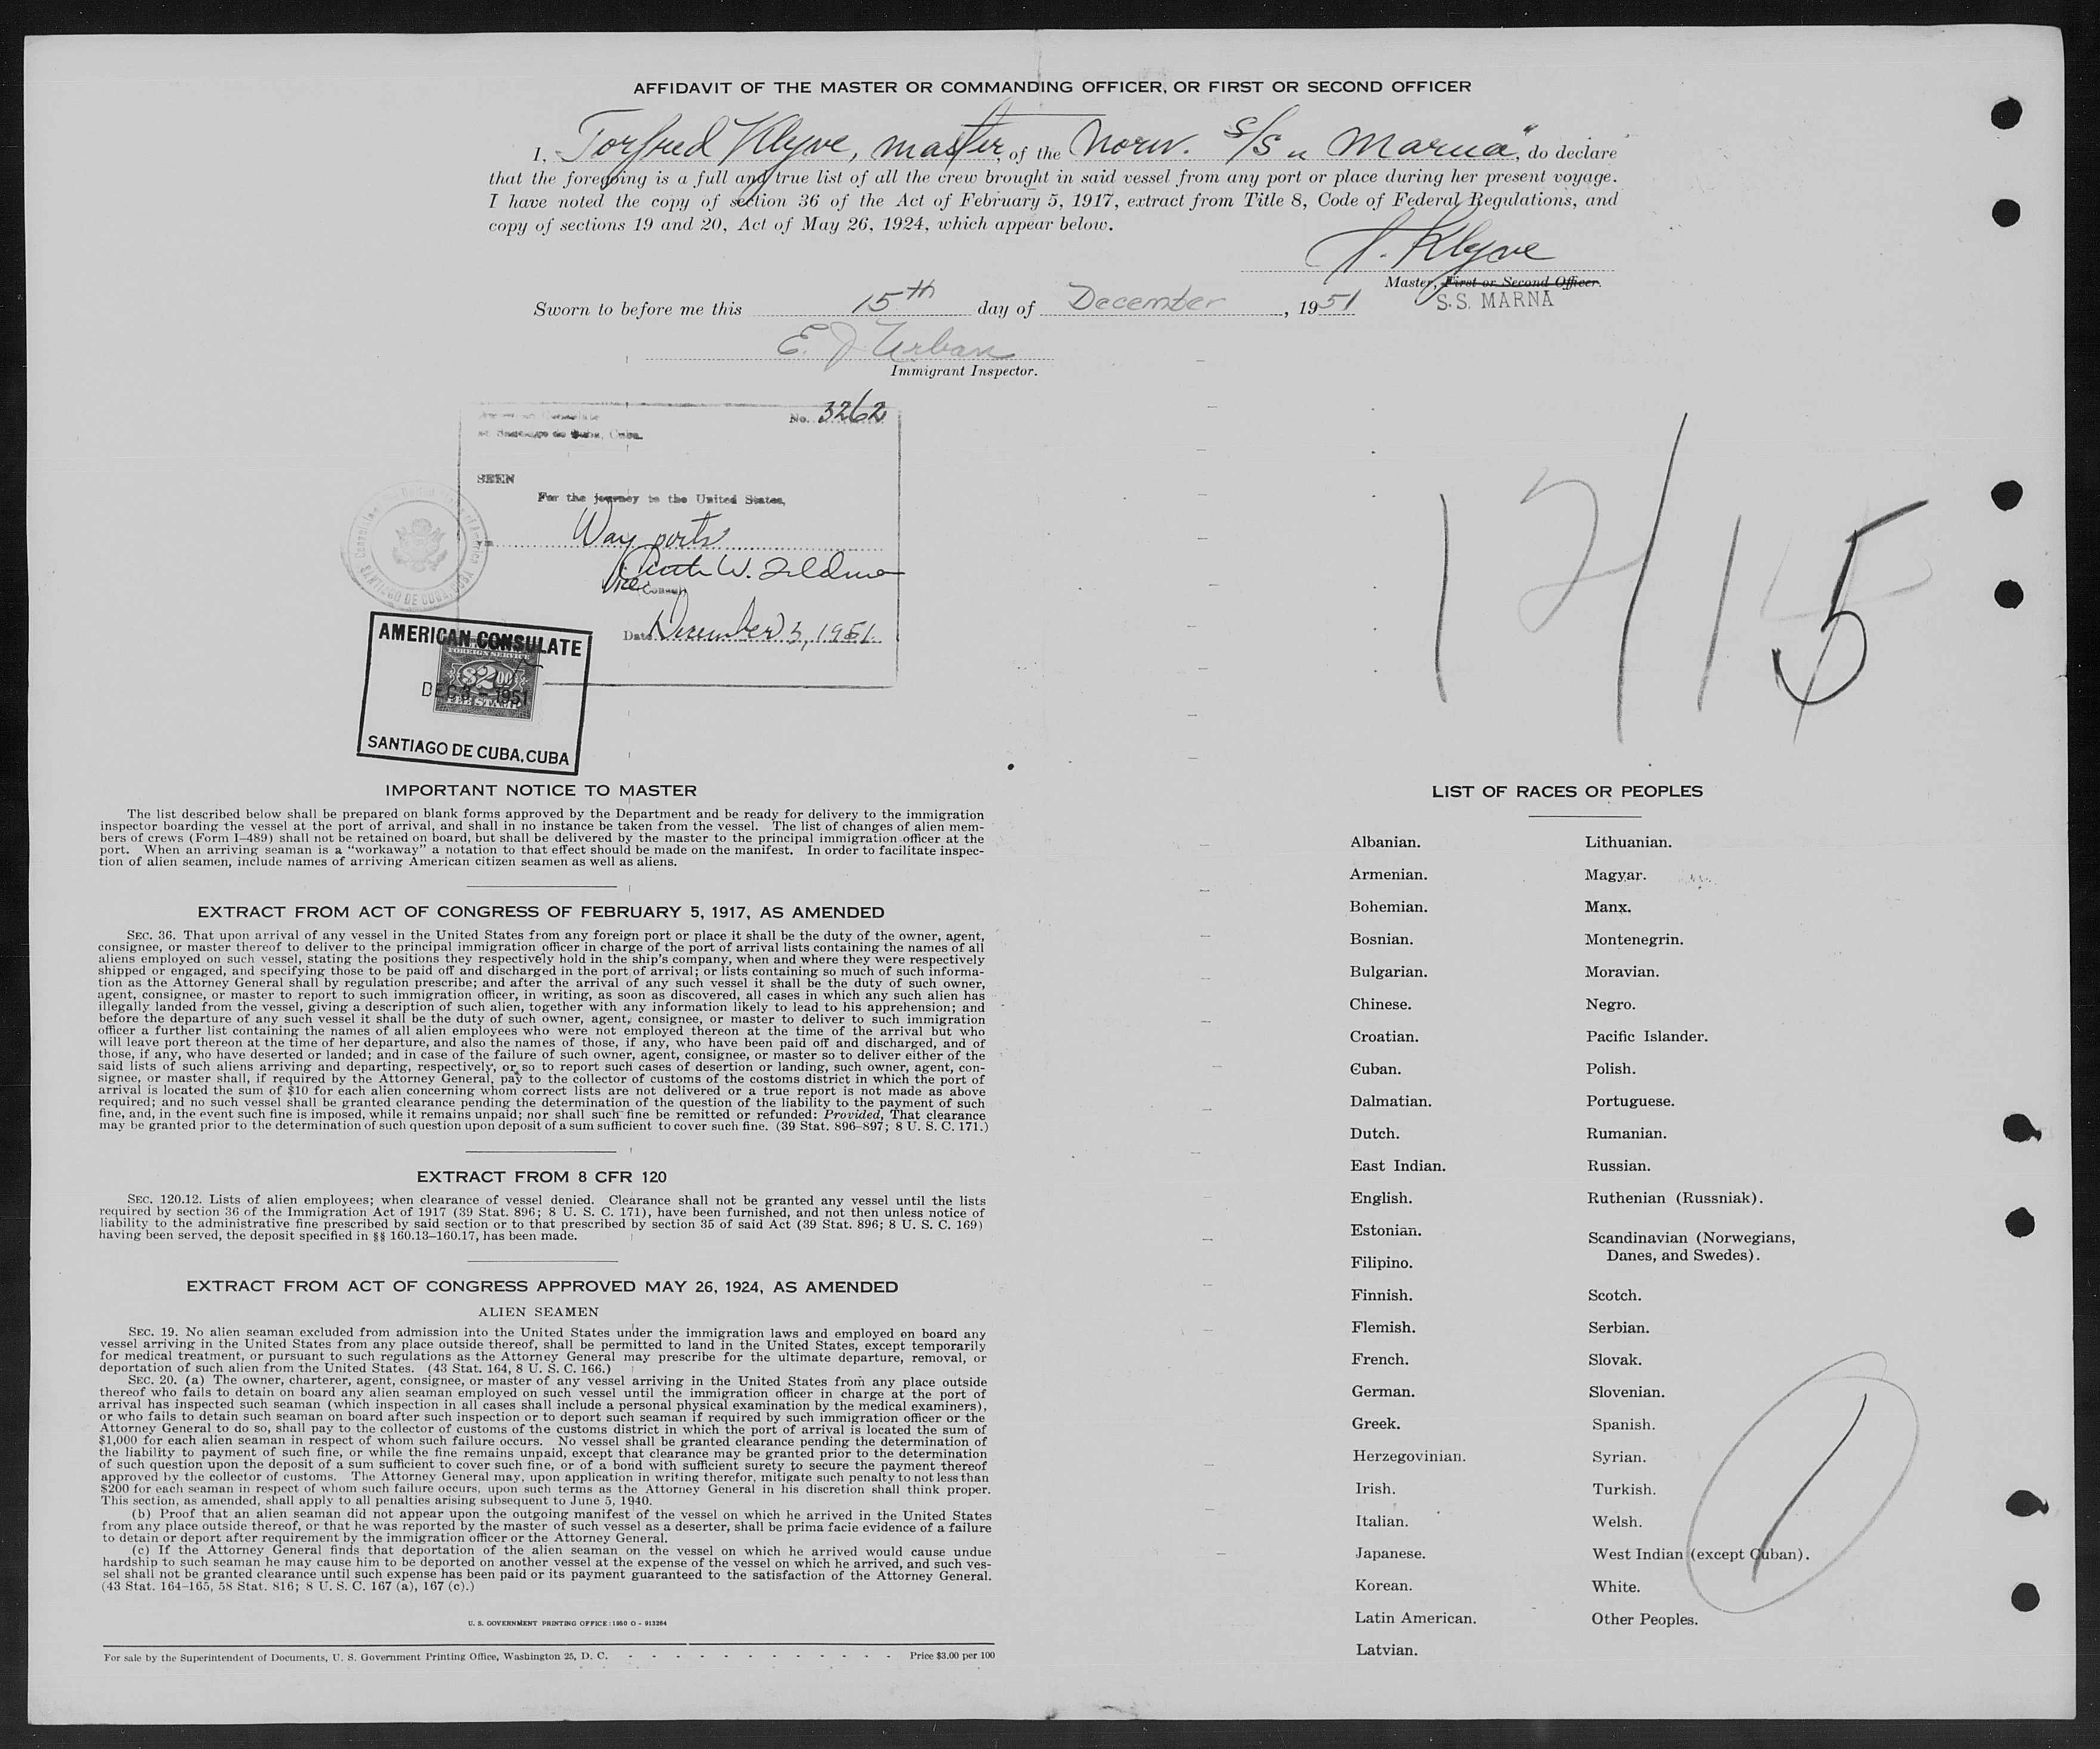 AFFIDAVIT OF THE MASTER OR COMMANDING OFFICER, OR FIRST OR SECOND OFFICER
I, Torfred Klyve, master, of the Norw. S/S "Marna", do declare
that the foregoing is a full and true list of all the crew brought in said vessel from any port or place during her present voyage.
I have noted the copy of section 36 of the Act of February 5, 1917, extract from Title 8, Code of Federal Regulations, and
copy of sections 19 and 20, Act of May 26, 1924, which appear below.
T. Klyve
Master, First or Second Officer.
S.S. MARNA
Sworn to before me this 15th day of December, 1951
E. J. Urban
Immigrant Inspector.
No. 3262
at Santiago de Cuba, Cuba.
SEEN
For the journey to the United States,
via Way ports
W.
Vice Consul
Date December 3, 1951.
SANTIAGO DE CUBA, CUBA
AMERICAN CONSULATE
FOREIGN SERVICE
$2.00
DEC 3 - 1951
FEE STAMP
SANTIAGO DE CUBA, CUBA
12/15
IMPORTANT NOTICE TO MASTER
The list described below shall be prepared on blank forms approved by the Department and be ready for delivery to the immigration
inspector boarding the vessel at the port of arrival, and shall in no instance be taken from the vessel. The list of changes of alien mem-
bers of crews (Form I-489) shall not be retained on board, but shall be delivered by the master to the principal immigration officer at the
port. When an arriving seaman is a "workaway" a notation to that effect should be made on the manifest. In order to facilitate inspec-
tion of alien seamen, include names of arriving American citizen seamen as well as aliens.
EXTRACT FROM ACT OF CONGRESS OF FEBRUARY 5, 1917, AS AMENDED
SEC. 36. That upon arrival of any vessel in the United States from any foreign port or place it shall be the duty of the owner, agent,
consignee, or master thereof to deliver to the principal immigration officer in charge of the port of arrival lists containing the names of all
aliens employed on such vessel, stating the positions they respectively hold in the ship's company, when and where they were respectively
shipped or engaged, and specifying those to be paid off and discharged in the port of arrival; or lists containing so much of such informa-
tion as the Attorney General shall by regulation prescribe; and after the arrival of any such vessel it shall be the duty of such owner,
agent, consignee, or master to report to such immigration officer, in writing, as soon as discovered, all cases in which any such alien has
illegally landed from the vessel, giving a description of such alien, together with any information likely to lead to his apprehension; and
before the departure of any such vessel it shall be the duty of such owner, agent, consignee, or master to deliver to such immigration
officer a further list containing the names of all alien employees who were not employed thereon at the time of the arrival but who
will leave port thereon at the time of her departure, and also the names of those, if any, who have been paid off and discharged, and of
those, if any, who have deserted or landed; and in case of the failure of such owner, agent, consignee, or master so to deliver either of the
said lists of such aliens arriving and departing, respectively, or so to report such cases of desertion or landing, such owner, agent, con-
signee, or master shall, if required by the Attorney General, pay to the collector of customs of the costoms district in which the port of
arrival is located the sum of $10 for each alien concerning whom correct lists are not delivered or a true report is not made as above
required; and no such vessel shall be granted clearance pending the determination of the question of the liability to the payment of such
fine, and, in the event such fine is imposed, while it remains unpaid; nor shall such fine be remitted or refunded: Provided, That clearance
may be granted prior to the determination of such question upon deposit of a sum sufficient to cover such fine. (39 Stat. 896-897; 8 U. S. C. 171.)
EXTRACT FROM 8 CFR 120
SEC. 120.12. Lists of alien employees; when clearance of vessel denied. Clearance shall not be granted any vessel until the lists
required by section 36 of the Immigration Act of 1917 (39 Stat. 896; 8 U. S. C. 171), have been furnished, and not then unless notice of
liability to the administrative fine prescribed by said section or to that prescribed by section 35 of said Act (39 Stat. 896; 8 U. S. C. 169)
having been served, the deposit specified in §§ 160.13-160.17, has been made.
EXTRACT FROM ACT OF CONGRESS APPROVED MAY 26, 1924, AS AMENDED
ALIEN SEAMEN
SEC. 19. No alien seaman excluded from admission into the United States under the immigration laws and employed on board any
vessel arriving in the United States from any place outside thereof, shall be permitted to land in the United States, except temporarily
for medical treatment, or pursuant to such regulations as the Attorney General may prescribe for the ultimate departure, removal, or
deportation of such alien from the United States. (43 Stat. 164, 8 U. S. C. 166.)
SEC. 20. (a) The owner, charterer, agent, consignee, or master of any vessel arriving in the United States from any place outside
thereof who fails to detain on board any alien seaman employed on such vessel until the immigration officer in charge at the port of
arrival has inspected such seaman (which inspection in all cases shall include a personal physical examination by the medical examiners),
or who fails to detain such seaman on board after such inspection or to deport such seaman if required by such immigration officer or the
Attorney General to do so, shall pay to the collector of customs of the customs district in which the port of arrival is located the sum of
$1,000 for each alien seaman in respect of whom such failure occurs. No vessel shall be granted clearance pending the determination of
the liability to payment of such fine, or while the fine remains unpaid, except that clearance may be granted prior to the determination
of such question upon the deposit of a sum sufficient to cover such fine, or of a bond with sufficient surety to secure the payment thereof
approved by the collector of customs. The Attorney General may, upon application in writing therefor, mitigate such penalty to not less than
$200 for each seaman in respect of whom such failure occurs, upon such terms as the Attorney General in his discretion shall think proper.
This section, as amended, shall apply to all penalties arising subsequent to June 5, 1940.
(b) Proof that an alien seaman did not appear upon the outgoing manifest of the vessel on which he arrived in the United States
from any place outside thereof, or that he was reported by the master of such vessel as a deserter, shall be prima facie evidence of a failure
to detain or deport after requirement by the immigration officer or the Attorney General.
(c) If the Attorney General finds that deportation of the alien seaman on the vessel on which he arrived would cause undue
hardship to such seaman he may cause him to be deported on another vessel at the expense of the vessel on which he arrived, and such ves-
sel shall not be granted clearance until such expense has been paid or its payment guaranteed to the satisfaction of the Attorney General.
(43 Stat. 164-165, 58 Stat. 816; 8 U. S. C. 167 (a), 167 (c).)
U. S. GOVERNMENT PRINTING OFFICE: 1950 O - 913264
For sale by the Superintendent of Documents, U. S. Government Printing Office, Washington 25, D. C. - - - - - - - - - - - - Price $3.00 per 100
LIST OF RACES OR PEOPLES
Albanian.
Armenian.
Bohemian.
Bosnian.
Bulgarian.
Chinese.
Croatian.
Cuban.
Dalmatian.
Dutch.
East Indian.
English.
Estonian.
Filipino.
Finnish.
Flemish.
French.
German.
Greek.
Herzegovinian.
Irish.
Italian.
Japanese.
Korean.
Latin American.
Latvian.
Lithuanian.
Magyar.
Manx.
Montenegrin.
Moravian.
Negro.
Pacific Islander.
Polish.
Portuguese.
Rumanian.
Russian.
Ruthenian (Russniak).
Scandinavian (Norwegians,
Danes, and Swedes).
Scotch.
Serbian.
Slovak.
Slovenian.
Spanish.
Syrian.
Turkish.
Welsh.
West Indian (except Cuban).
White.
Other Peoples.
1